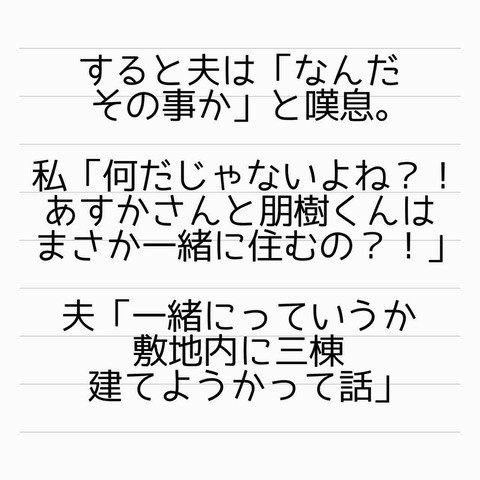 すると夫は「なんだ
その事か」と嘆息。
私「何だじゃないよね？！
あすかさんと朋樹くんは
まさか一緒に住むの？！」
夫「一緒にっていうか
敷地内に三棟
建てようかって話」